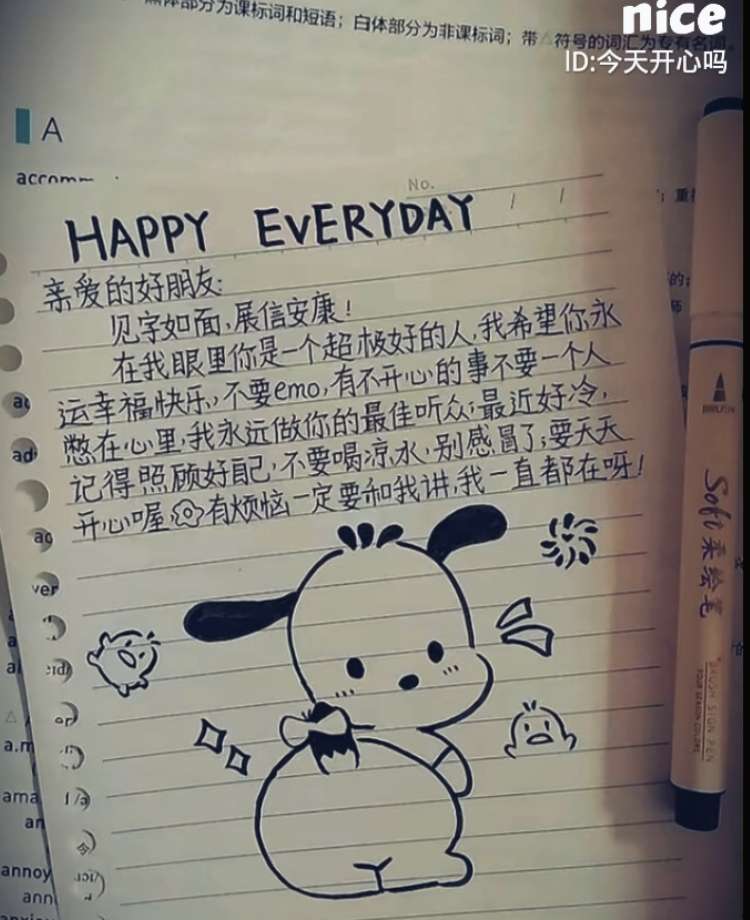 nice
ID:今天开心吗
体部分为课标词和短语；白体部分为非课标词；带△符号的词汇为专有名词。
A
No.
HAPPY EVERYDAY
亲爱的好朋友：
见字如面，展信安康！
在我眼里你是一个超极好的人，我希望你永
远幸福快乐，不要emo，有不开心的事不要一个人
憋在心里，我永远做你的最佳听众；最近好冷，
记得照顾好自己，不要喝凉水，别感冒了；要天天
开心喔，有烦恼一定要和我讲，我一直都在呀！
Soft 柔绘笔
BRUSH SIGN PEN
FOUR SEASON COLORS
ad
ver
a.m
ama
an
annoy
ann